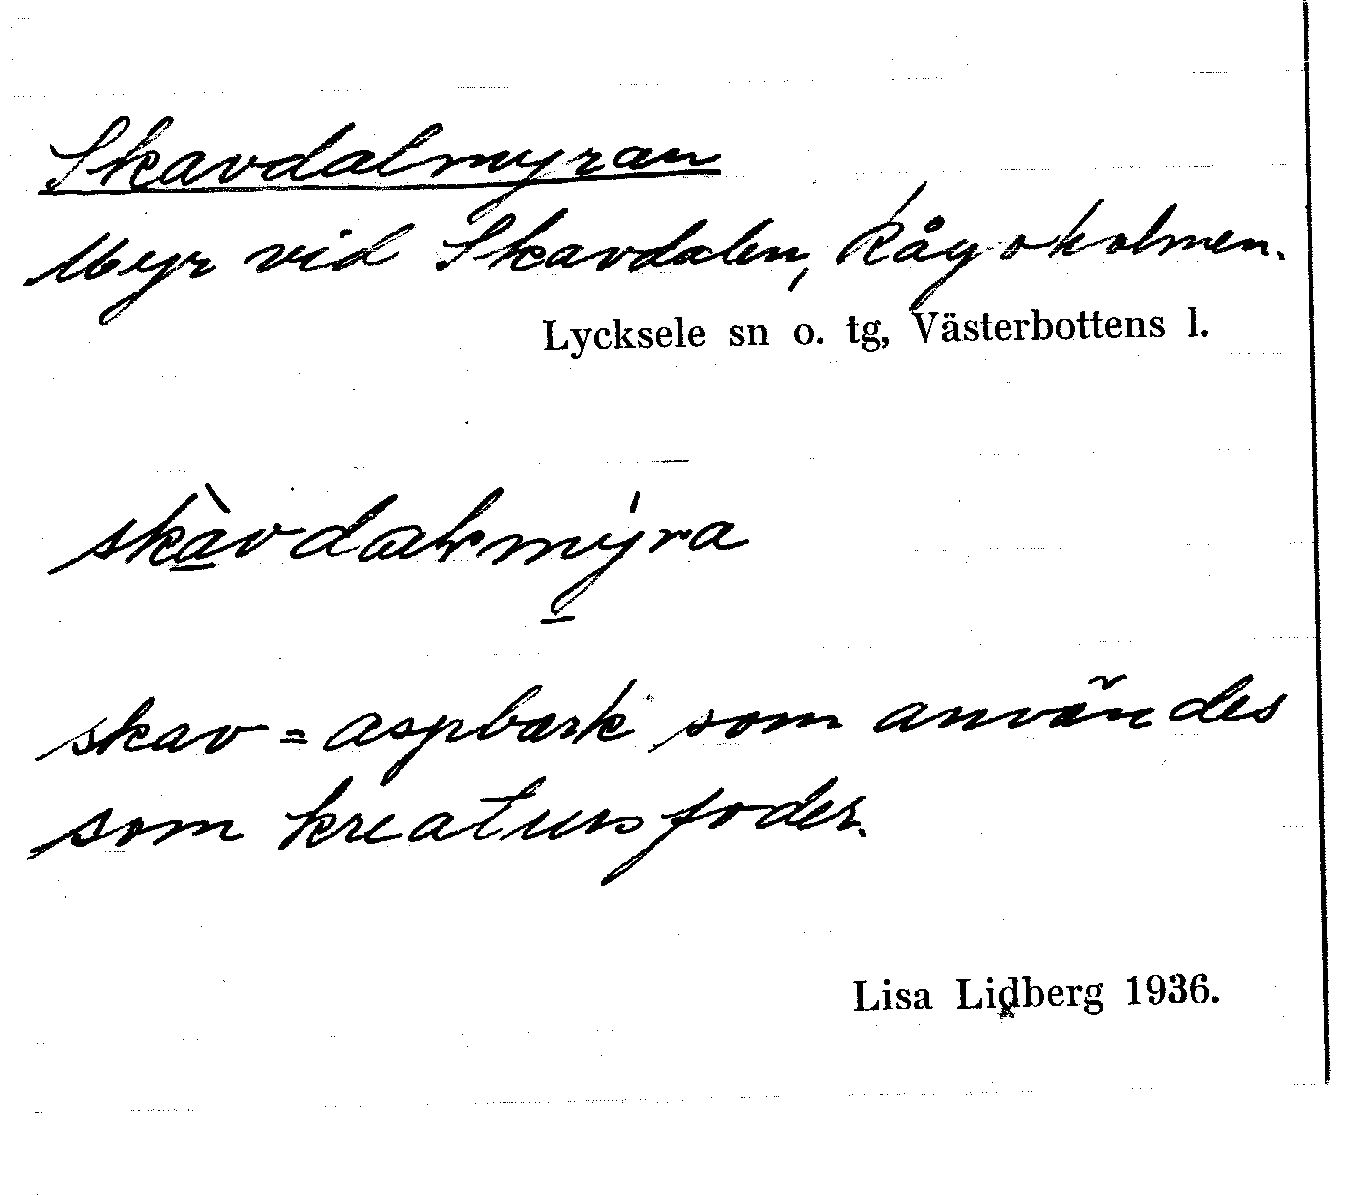 Skavdalmyran
Myr vid Skavdalen, Rågoholmen.
Lycksele sn o. tg, Västerbottens l.
skàvdalsmýra
skav = aspbark som användes
som kreatursfoder.
Lisa Lidberg 1936.